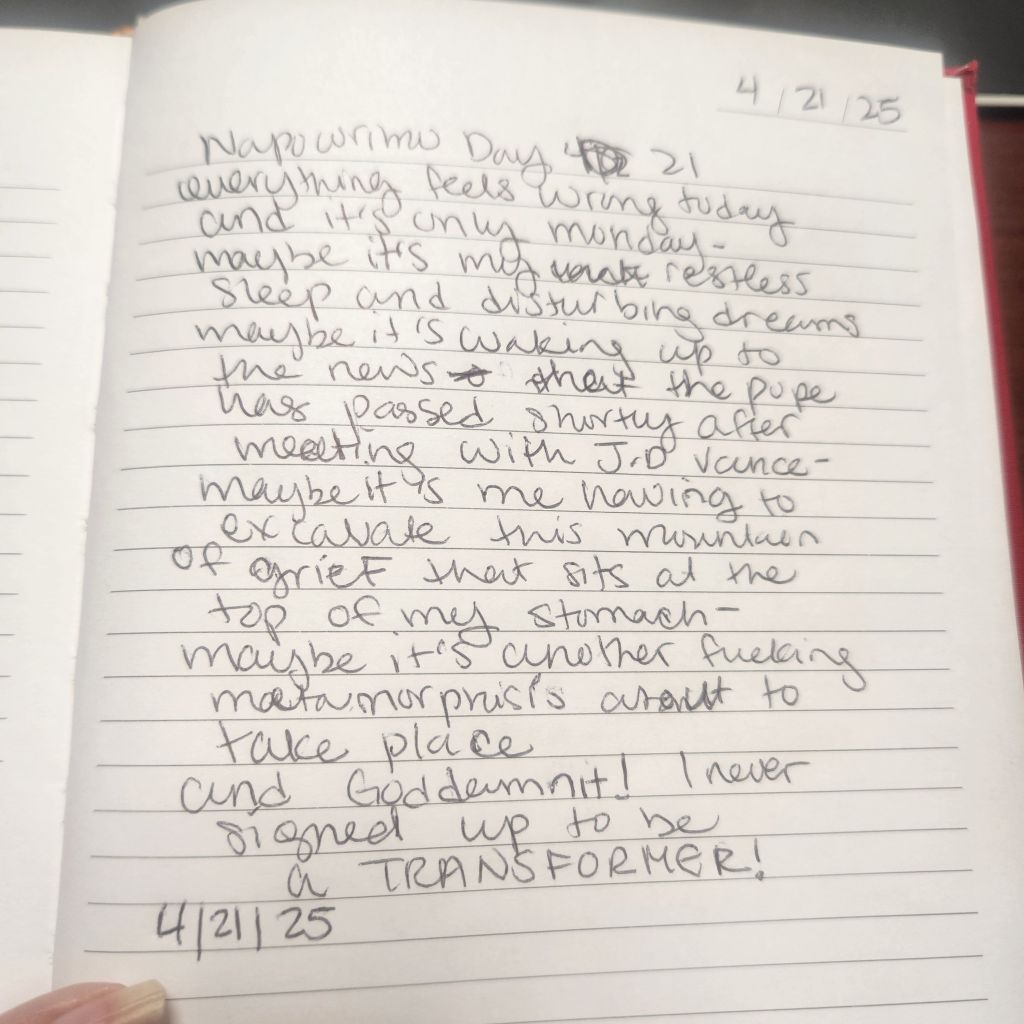 4/21/25
Napowrimo Day 21
everything feels wrong today
and it's only monday-
maybe it's my restless
sleep and disturbing dreams
maybe it's waking up to
the news that the pope
has passed shortly after
meeting with J.D Vance-
maybe it's me having to
excavate this mountain
of grief that sits at the
top of my stomach-
maybe it's another fucking
metamorphisis about to
take place
and Goddamnit! I never
signed up to be
a TRANSFORMER!
4/21/25